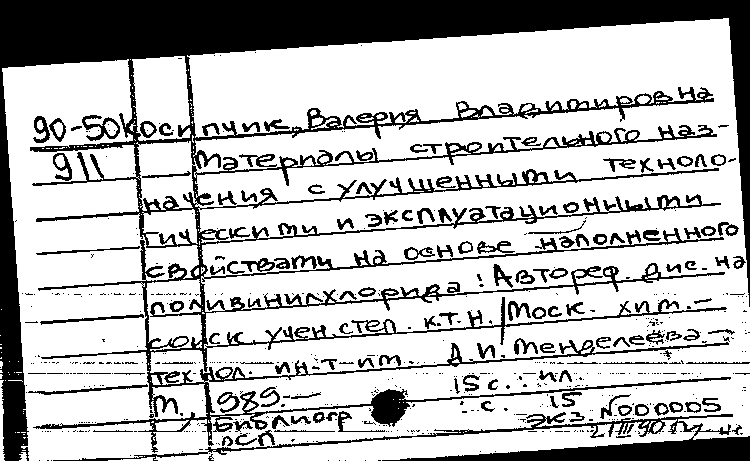 90-50 Косипчик, Валерия Владимировна
911 Материалы строительного наз-
начения с улучшенными техноло-
гическими и эксплуатационными
свойствами на основе наполненного
поливинилхлорида : Автореф. дис. на
соиск. учен. степ. к.т.н. / Моск. хим.-
технол. ин-т им. Д.И. Менделеева. -
М., 1989. - 15 с. : ил.
Библиогр. : с. 15
ДСП экз. N000005